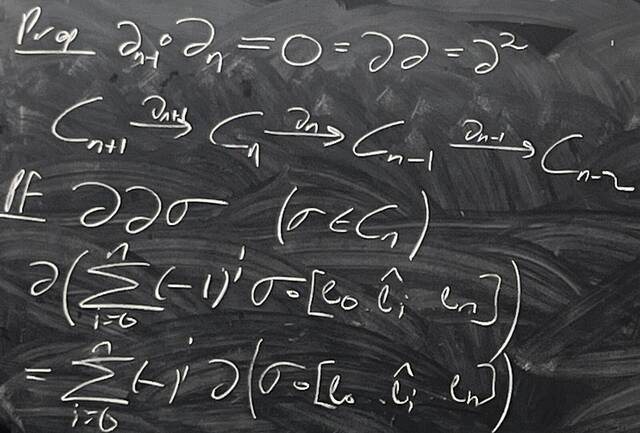 Prop ∂ₙ₋₁∘∂ₙ = 0 = ∂∂ = ∂²
Cₙ₊₁ —∂ₙ₊₁→ Cₙ —∂ₙ→ Cₙ₋₁ —∂ₙ₋₁→ Cₙ₋₂
PF ∂∂σ (σ∈Cₙ)
∂(∑_{i=0}^{n} (-1)^i σ∘[e₀ .. ê_i eₙ])
= ∑_{i=0}^{n} (-)^i ∂(σ∘[e₀ .. ê_i eₙ])